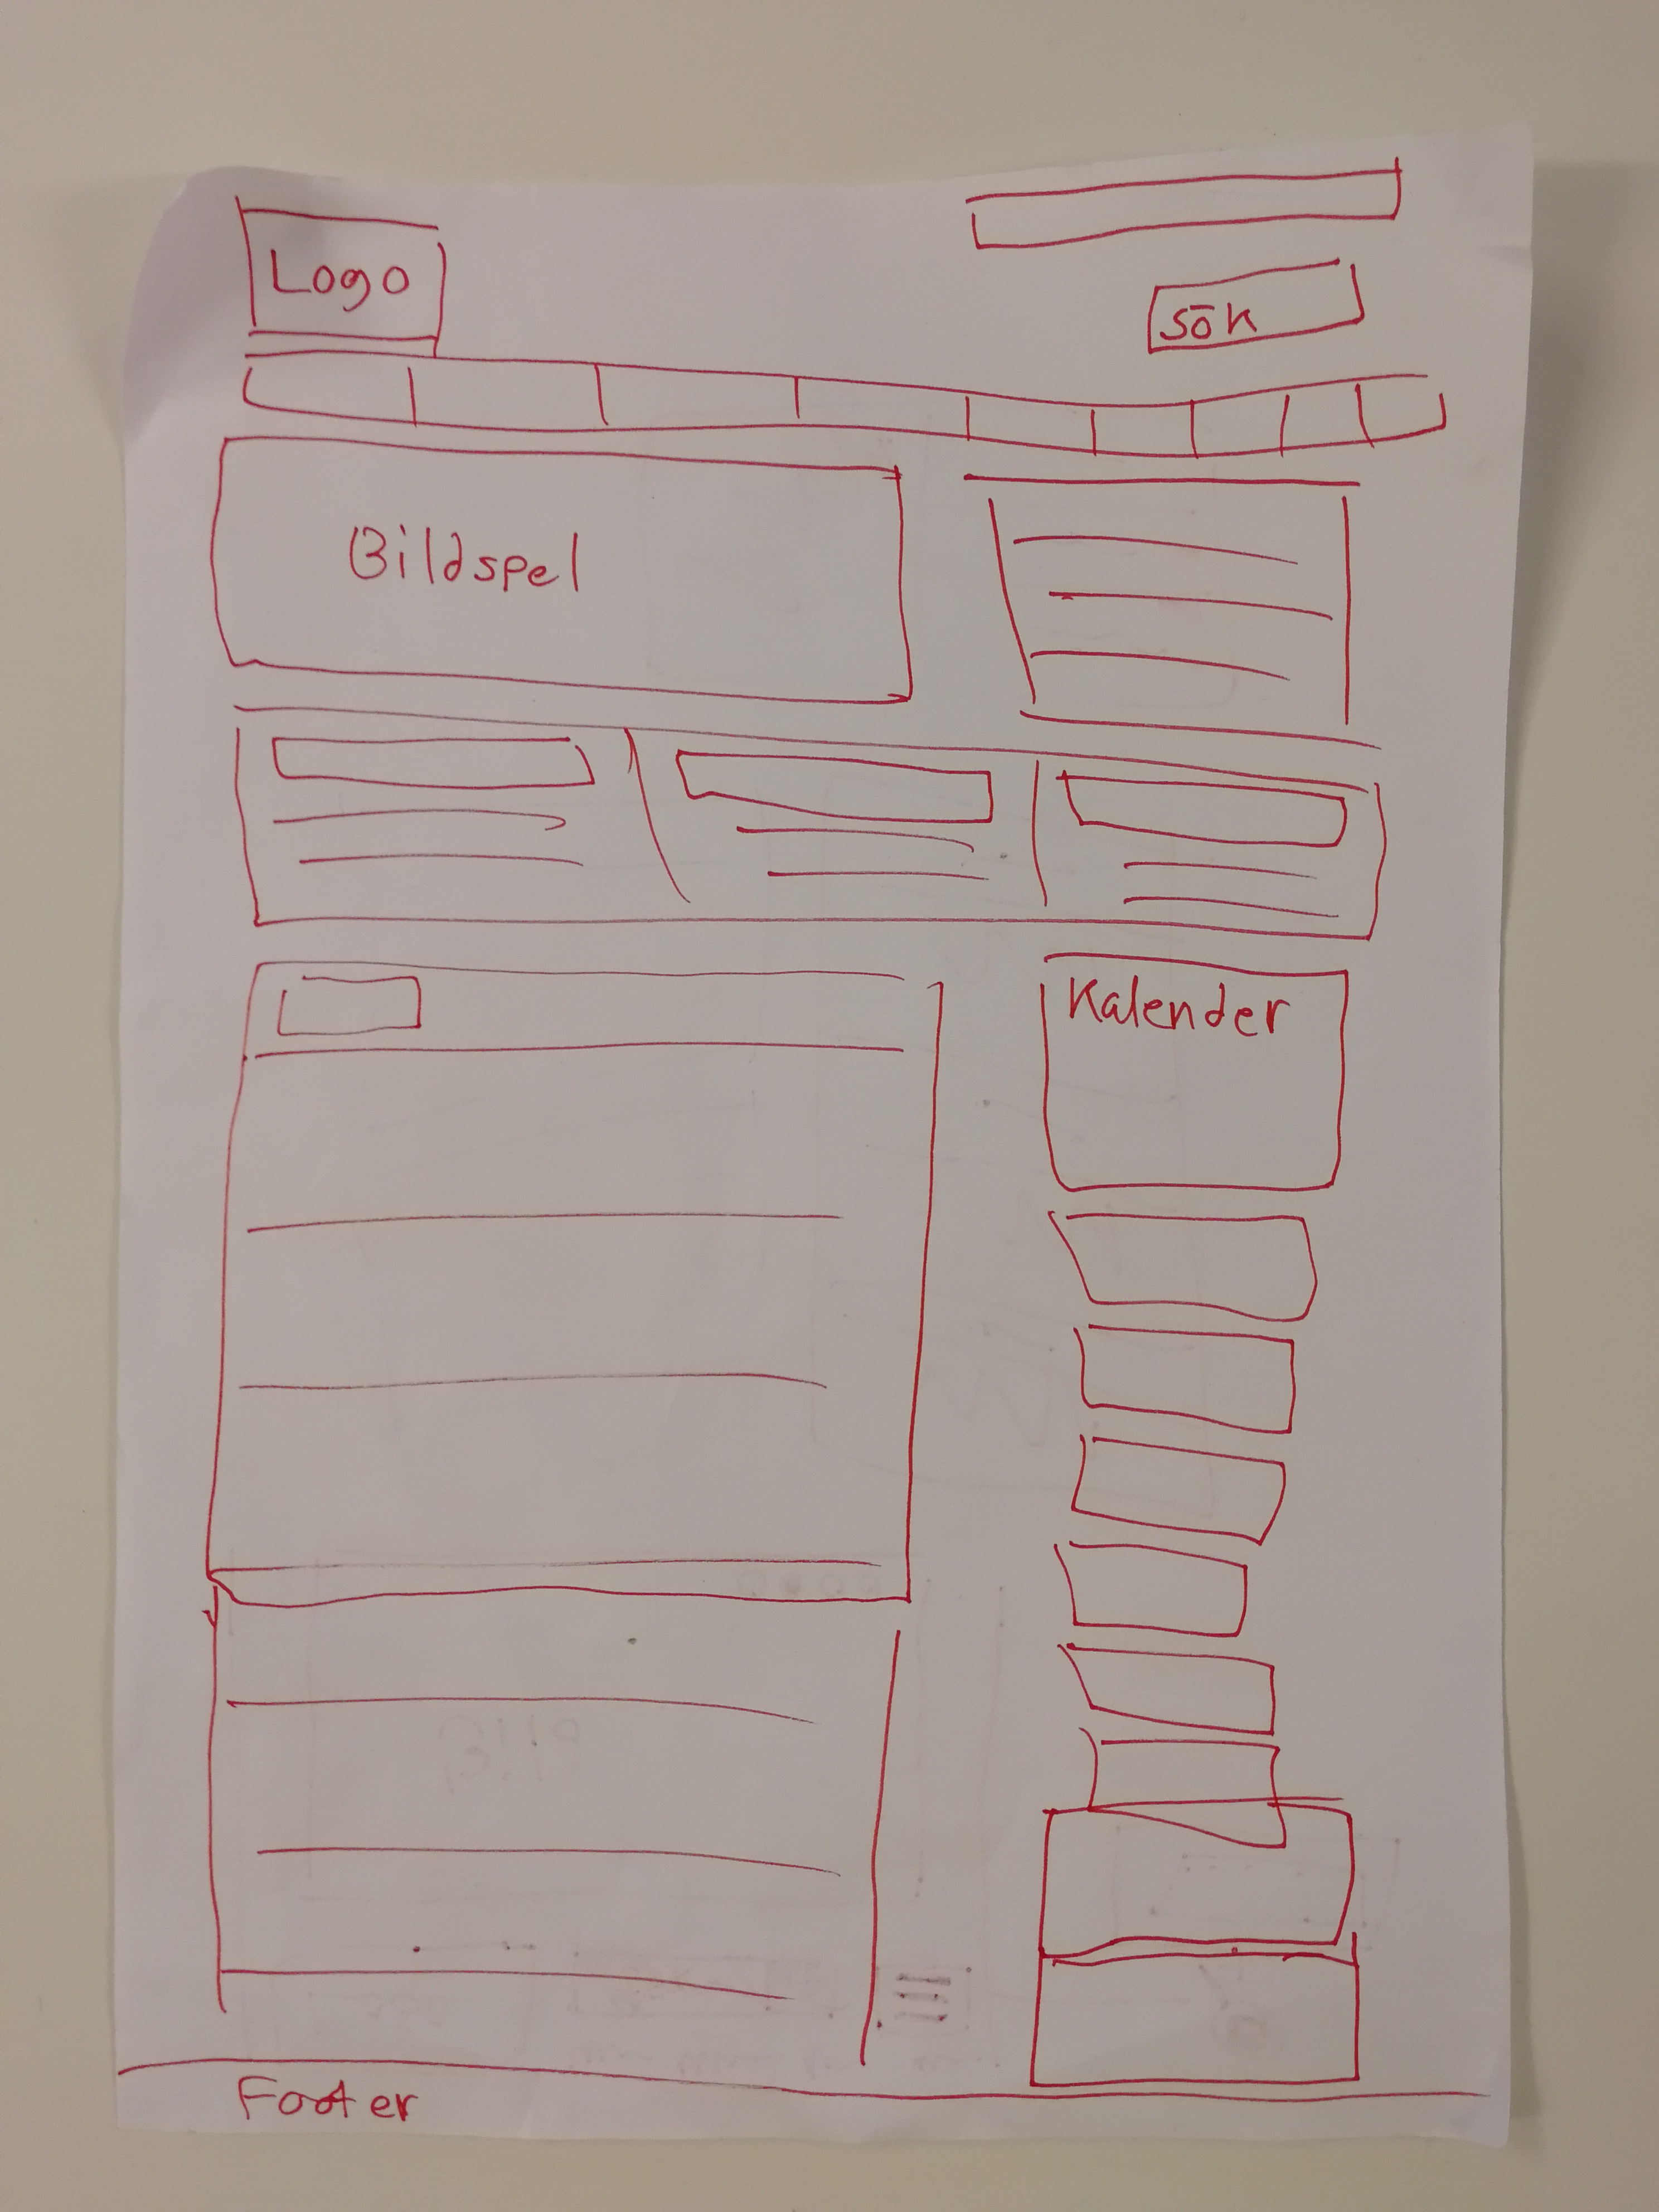 Logo
Sök
Bildspel
Kalender
Footer